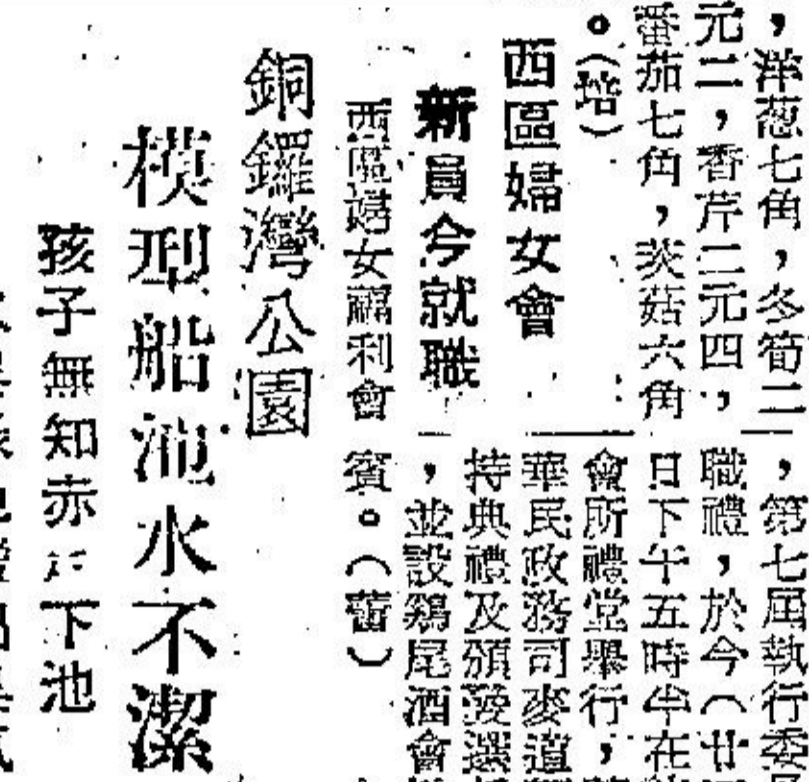 ，洋葱七角，冬筍二
元二，香芹二元四，
番茄七角，茨菇六角
。（培）
西區婦女會
新員今就職
西區婦女福利會
，第七屆執行委
職禮，於今（廿
日下午五時半在
會所禮堂舉行，
華民政務司麥道
持典禮及頒發選
，並設鷄尾酒會
賓。（蕾）
銅鑼灣公園
模型船池水不潔
孩子無知赤 下池